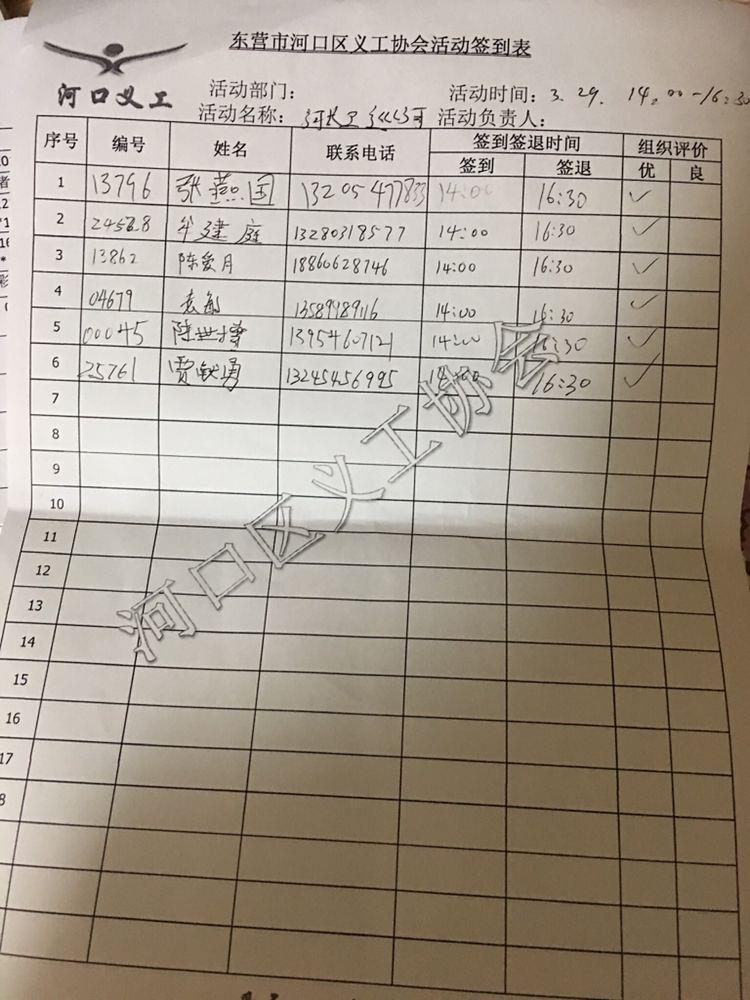 东营市河口区义工协会活动签到表
河口义工
活动部门： 活动时间：3.29. 14:00-16:30
活动名称： 活动负责人：
序号 编号 姓名 联系电话 签到签退时间 组织评价
签到 签退 优 良
1 13796 张燕国 13205477833 14:00 16:30 ✓
2 牟建庭 13280318577 14:00 16:30 ✓
3 13862 陈爱月 18860628746 14:00 16:30 ✓
4 04679 袁 13589989116 14:00 16:30 ✓
5 00045 陈世 13954607121 14:00 16:30 ✓
6 25761 贾 勇 13245456995 16:30 ✓
7
8
9
10
11
12
13
14
15
16
17
8
河口区义工协会